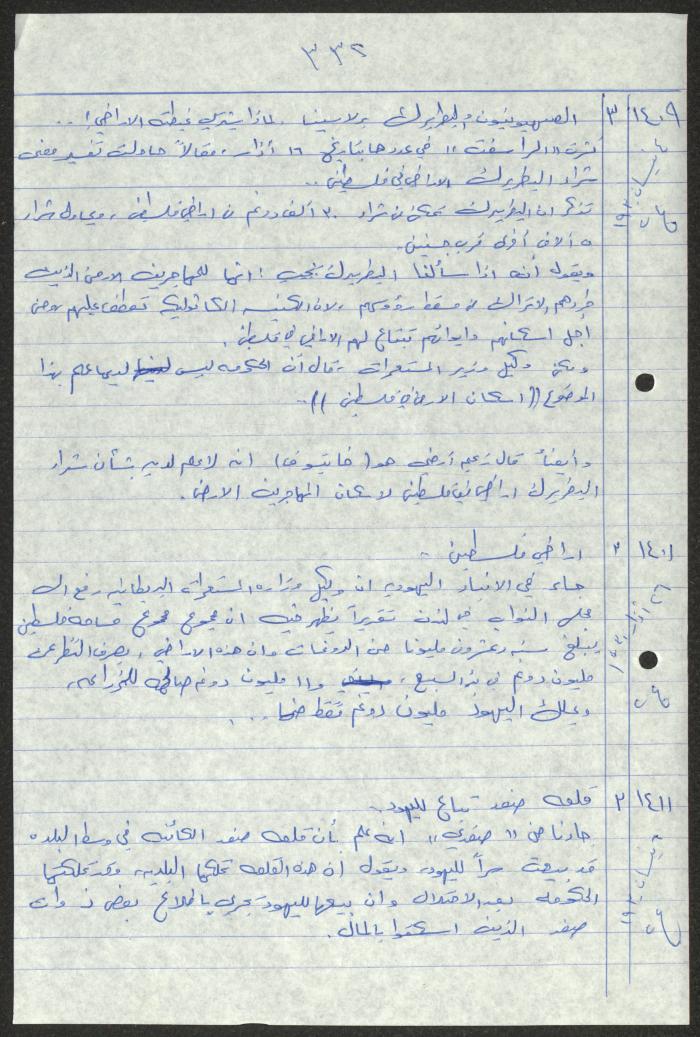 ٣٣٢
١٤٠٩ ٣ الصهيونيون والبطريرك برلاسينا . لماذا يشتري غبطته الاراضي! ..
نشرت "الراسفت" في عددها بتاريخ ١٦ آذار، مقالاً حاولت تفسير معنى
شراء البطريرك الاراضي في فلسطين ..
تذكر ان البطريرك تمكن من شراء ٣٠ ألف دونم من اراضي فلسطين، ويحاول شراء
٥ آلاف أخرى قرب جنين.
ويقول أنه اذا سألنا البطريرك يجيب : انها للمهاجرين الارمن الذين
طردهم الاتراك من مسقط رؤوسهم ، لان الكنيسه الكاثوليكية تعطف عليهم ومن
اجل اسكانهم وايوائهم تبتاع لهم الاراضي في فلسطين.
ولكن وكيل وزير المستعمرات ، قال أن الحكومه ليس لديها علم بهذا
الموضوع (( اسكان الارمن في فلسطين )) ..
وأيضاً قال زعيم أرمني هو ( خاتيوف ) انه لا علم لديه بشأن شراء
البطريرك اراضي في فلسطين لاسكان المهاجرين الارمن.
١٤١١ ٢ اراضي فلسطين :
جاء في الانباء اليهوديه ان وكيل وزاره المستعمرات البريطانيه رفع الى
مجلس النواب في لندن تقريراً يظهر فيه ان مجموع مجموع مساحه فلسطين
يبلغ سته وعشرون مليونا من الدونمات وان هذه الاراضي ، بصرف النظر عن
مليون دونم في بئر السبع، و ١١ مليون دونم صالحه للزراعه،
ويملك اليهود مليون دونم فقط منها ..
١٤١١ ٢ قلعه صفد تباع لليهود.
جاءنا من " صفدي " انه علم بأن قلعه صفد الكائنه في وسط البلده
قد بيعت سراً لليهود، ويقول ان هذه القلعه تملكها البلديه وقد تملكتها
الحكومه بعد الاحتلال وان بيعها لليهود يجري باطلاع بعض ذوات
صفد الذين استغووا بالمال.